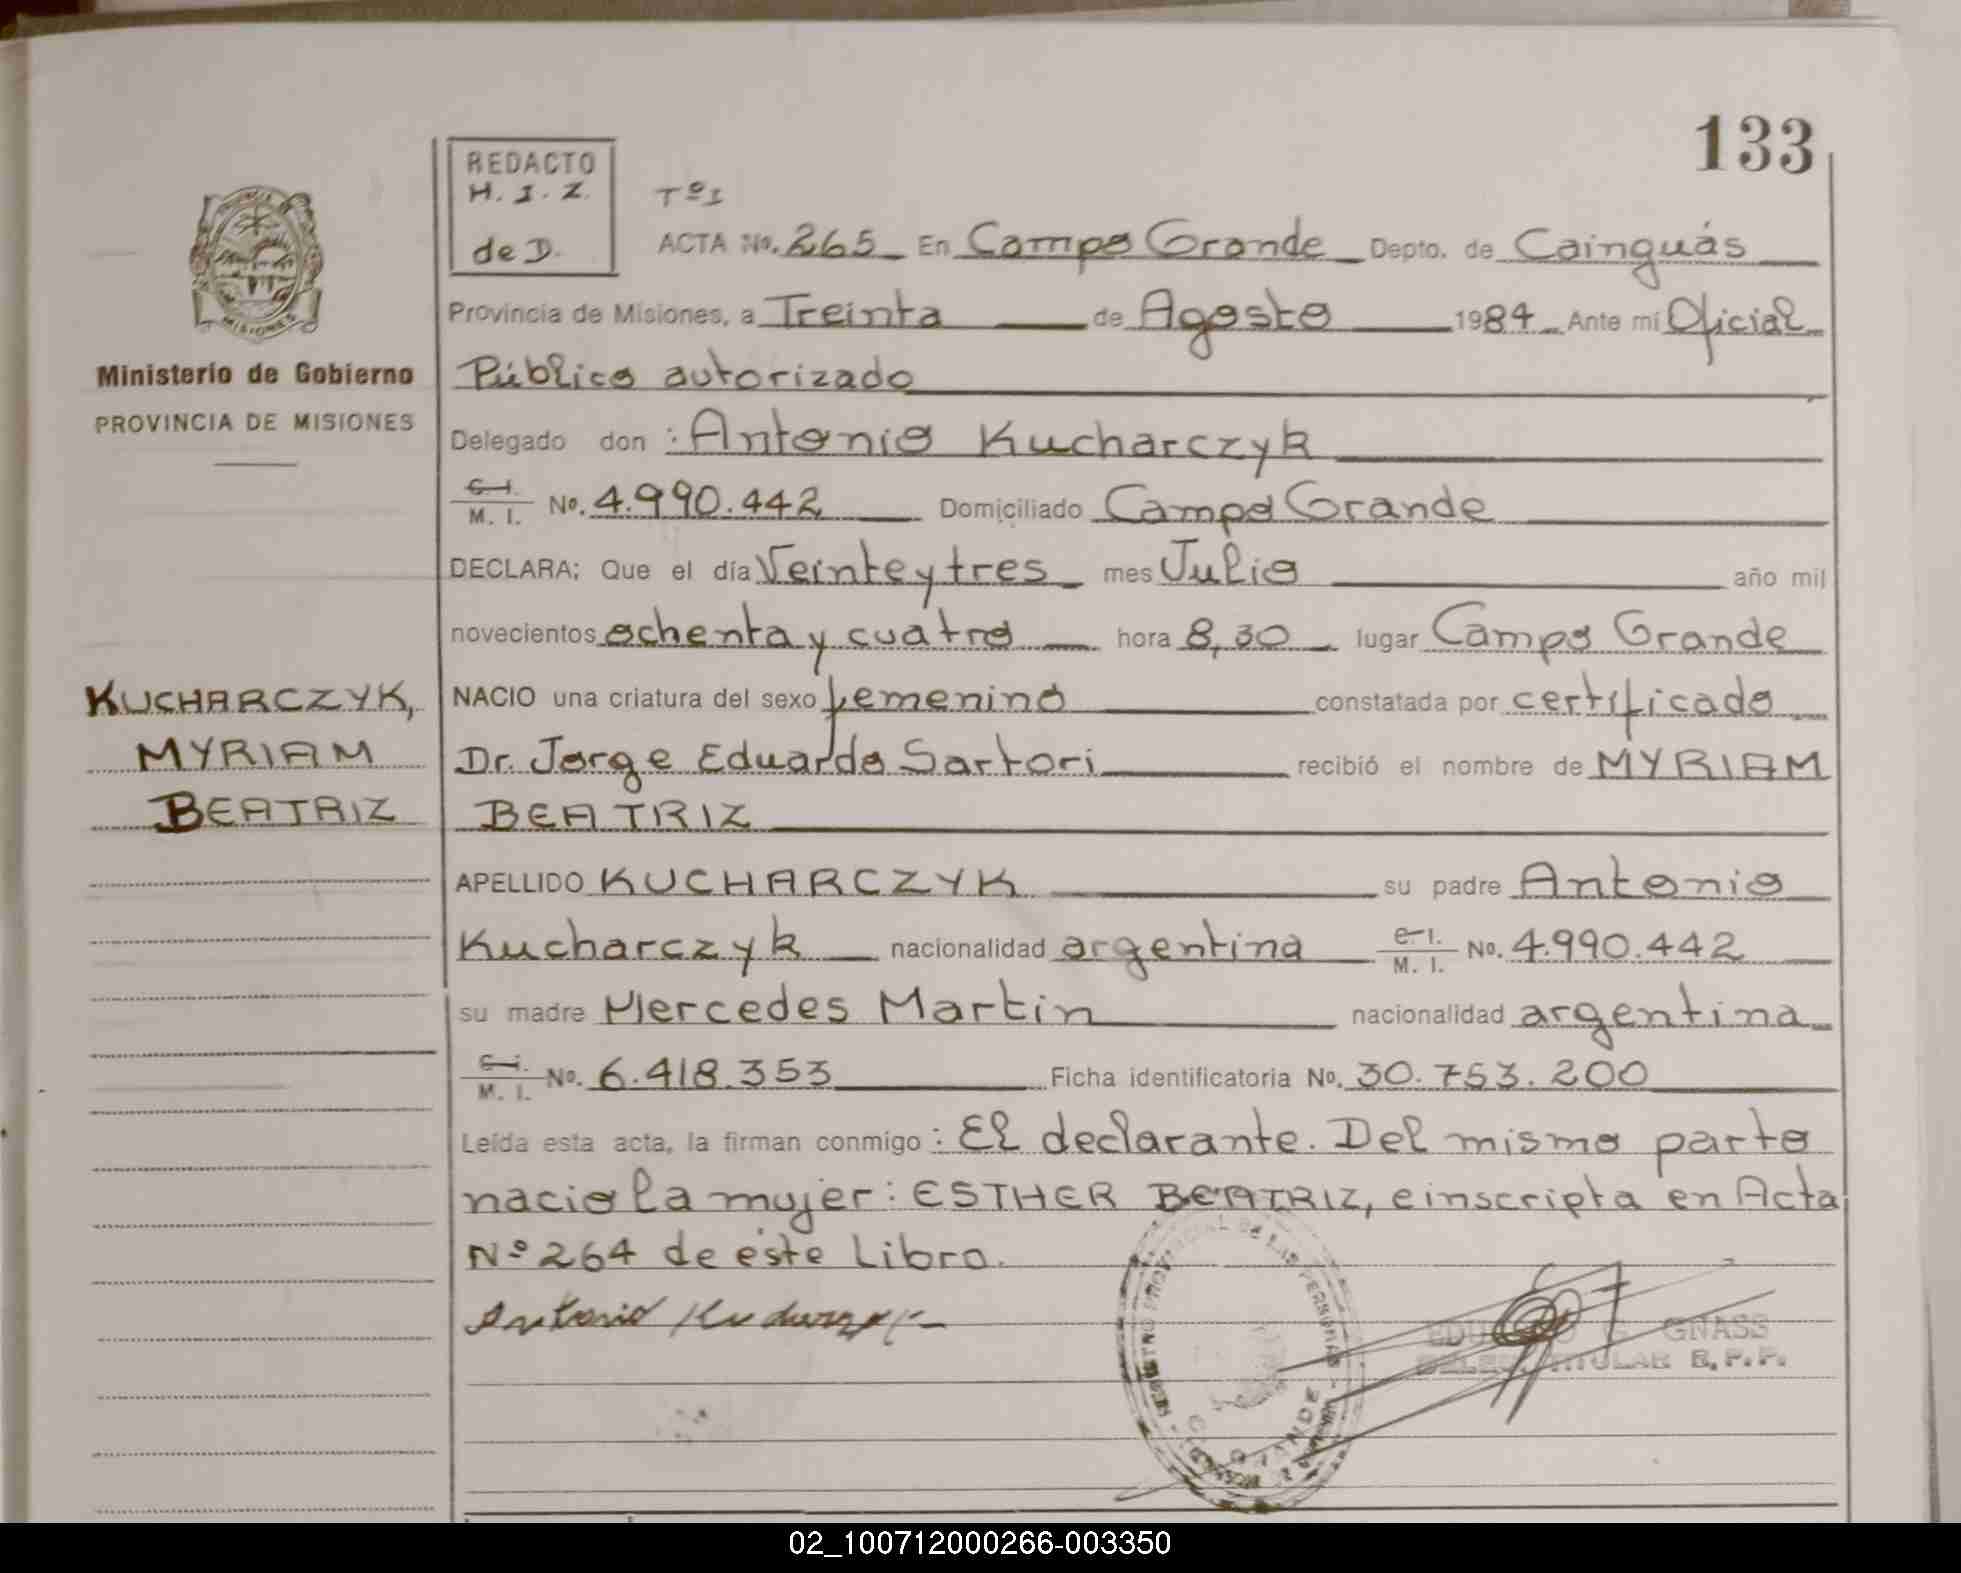 133
REDACTO
H. I. Z.
de D.
Tº I
ACTA No. 265 En Campo Grande Depto. de Cainguás
Provincia de Misiones, a Treinta de Agosto 1984 Ante mí Oficial
Público autorizado
Delegado don : Antonio Kucharczyk
C. I.
M. I. No. 4.990.442 Domiciliado Campo Grande
DECLARA: Que el día Veinte y tres mes Julio año mil
novecientos ochenta y cuatro hora 8,30 lugar Campo Grande
NACIO una criatura del sexo femenino constatada por certificado
Dr. Jorge Eduardo Sartori recibió el nombre de MYRIAM
BEATRIZ
APELLIDO KUCHARCZYK su padre Antonio
Kucharczyk nacionalidad argentina C. I.
M. I. No. 4.990.442
su madre Mercedes Martin nacionalidad argentina
C. I.
M. I. No. 6.418.353 Ficha identificatoria No. 30.753.200
Leída esta acta, la firman conmigo : El declarante. Del mismo parto
nacio la mujer: ESTHER BEATRIZ, e inscripta en Acta
Nº 264 de este Libro.
Antonio Kucharczyk
GNASS
TITULAR R.P.P.
MISIONES
Ministerio de Gobierno
PROVINCIA DE MISIONES
KUCHARCZYK,
MYRIAM
BEATRIZ
02_100712000266-003350